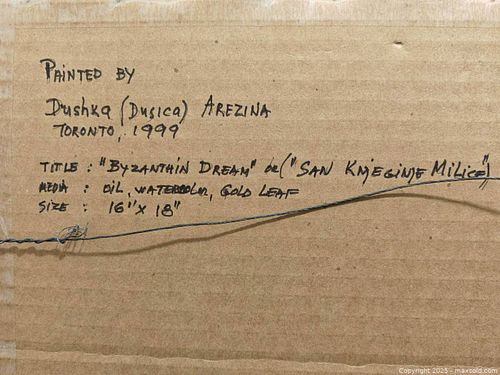 PAINTED BY
Dushka (Dusica) AREZINA
TORONTO, 1999
TITLE : "BYZANTHIN DREAM" or ("SAN KNJEGINJE MILICE")
MEDIA : OIL, WATERCOLOR, GOLD LEAF
SIZE : 16" x 18"
Copyright 2025 - maxsold.com